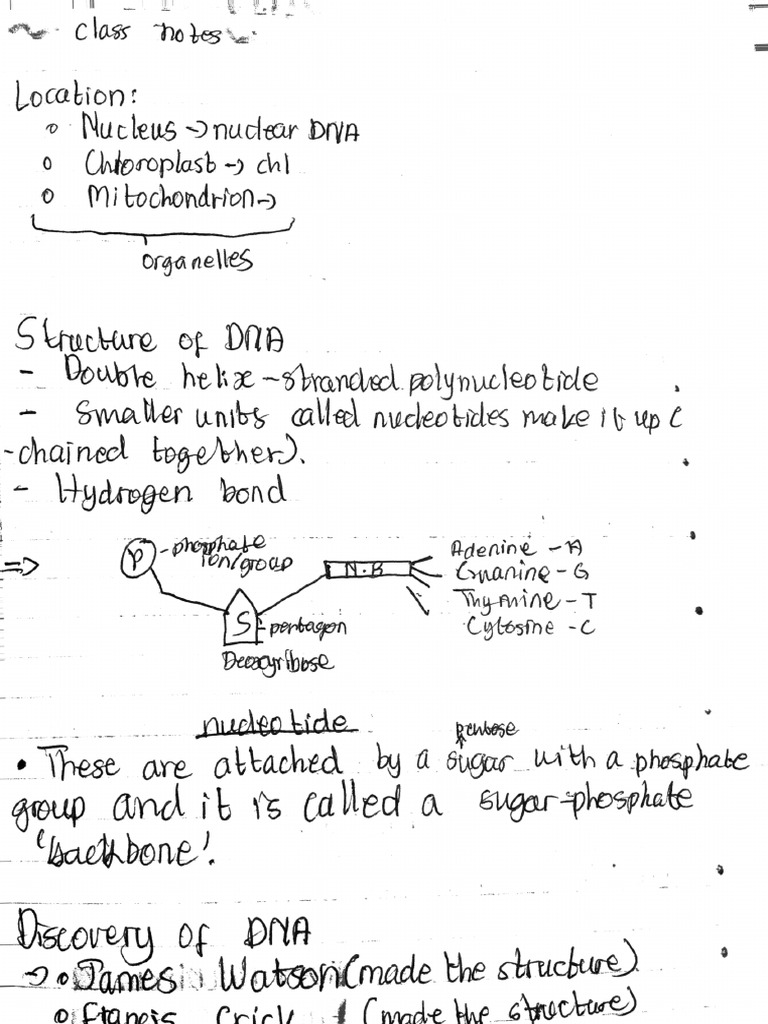 ~ class notes ~.
Location:
o Nucleus → nuclear DNA
o Chloroplast → chl
o Mitochondrion →
organelles
Structure of DNA
- Double helix - stranded polynucleotide
- Smaller units called nucleotides make it up (
-chained together).
- Hydrogen bond
⇒ P - phosphate
ion/group
N.B
Adenine - A
Guanine - G
Thymine - T
Cytosine - C
S - pentagon
Deoxyribose
nucleotide
pentose
• These are attached by a sugar with a phosphate
group and it is called a sugar-phosphate
'backbone'.
Discovery of DNA
→ o James Watson (made the structure)
o Francis Crick (made the structure)